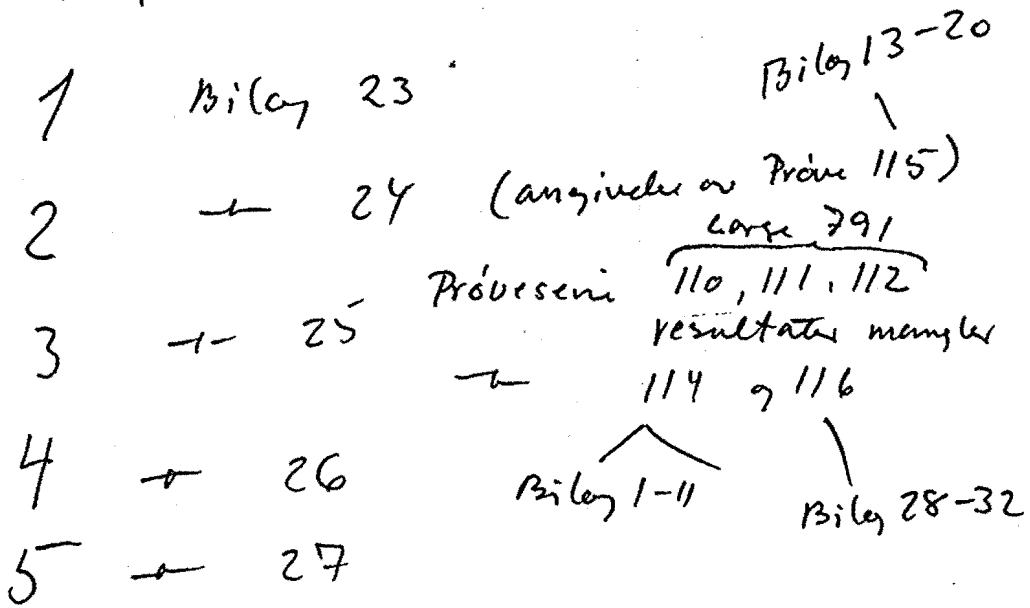 Bilag 13-20
1 Bilag 23
2 -"- 24 (angivelse av Prøve 115)
charge 791
Prøveserie 110, 111, 112
3 -"- 25 resultater mangler
-"- 114 og 116
4 -"- 26 Bilag 1-11 Bilag 28-32
5 -"- 27